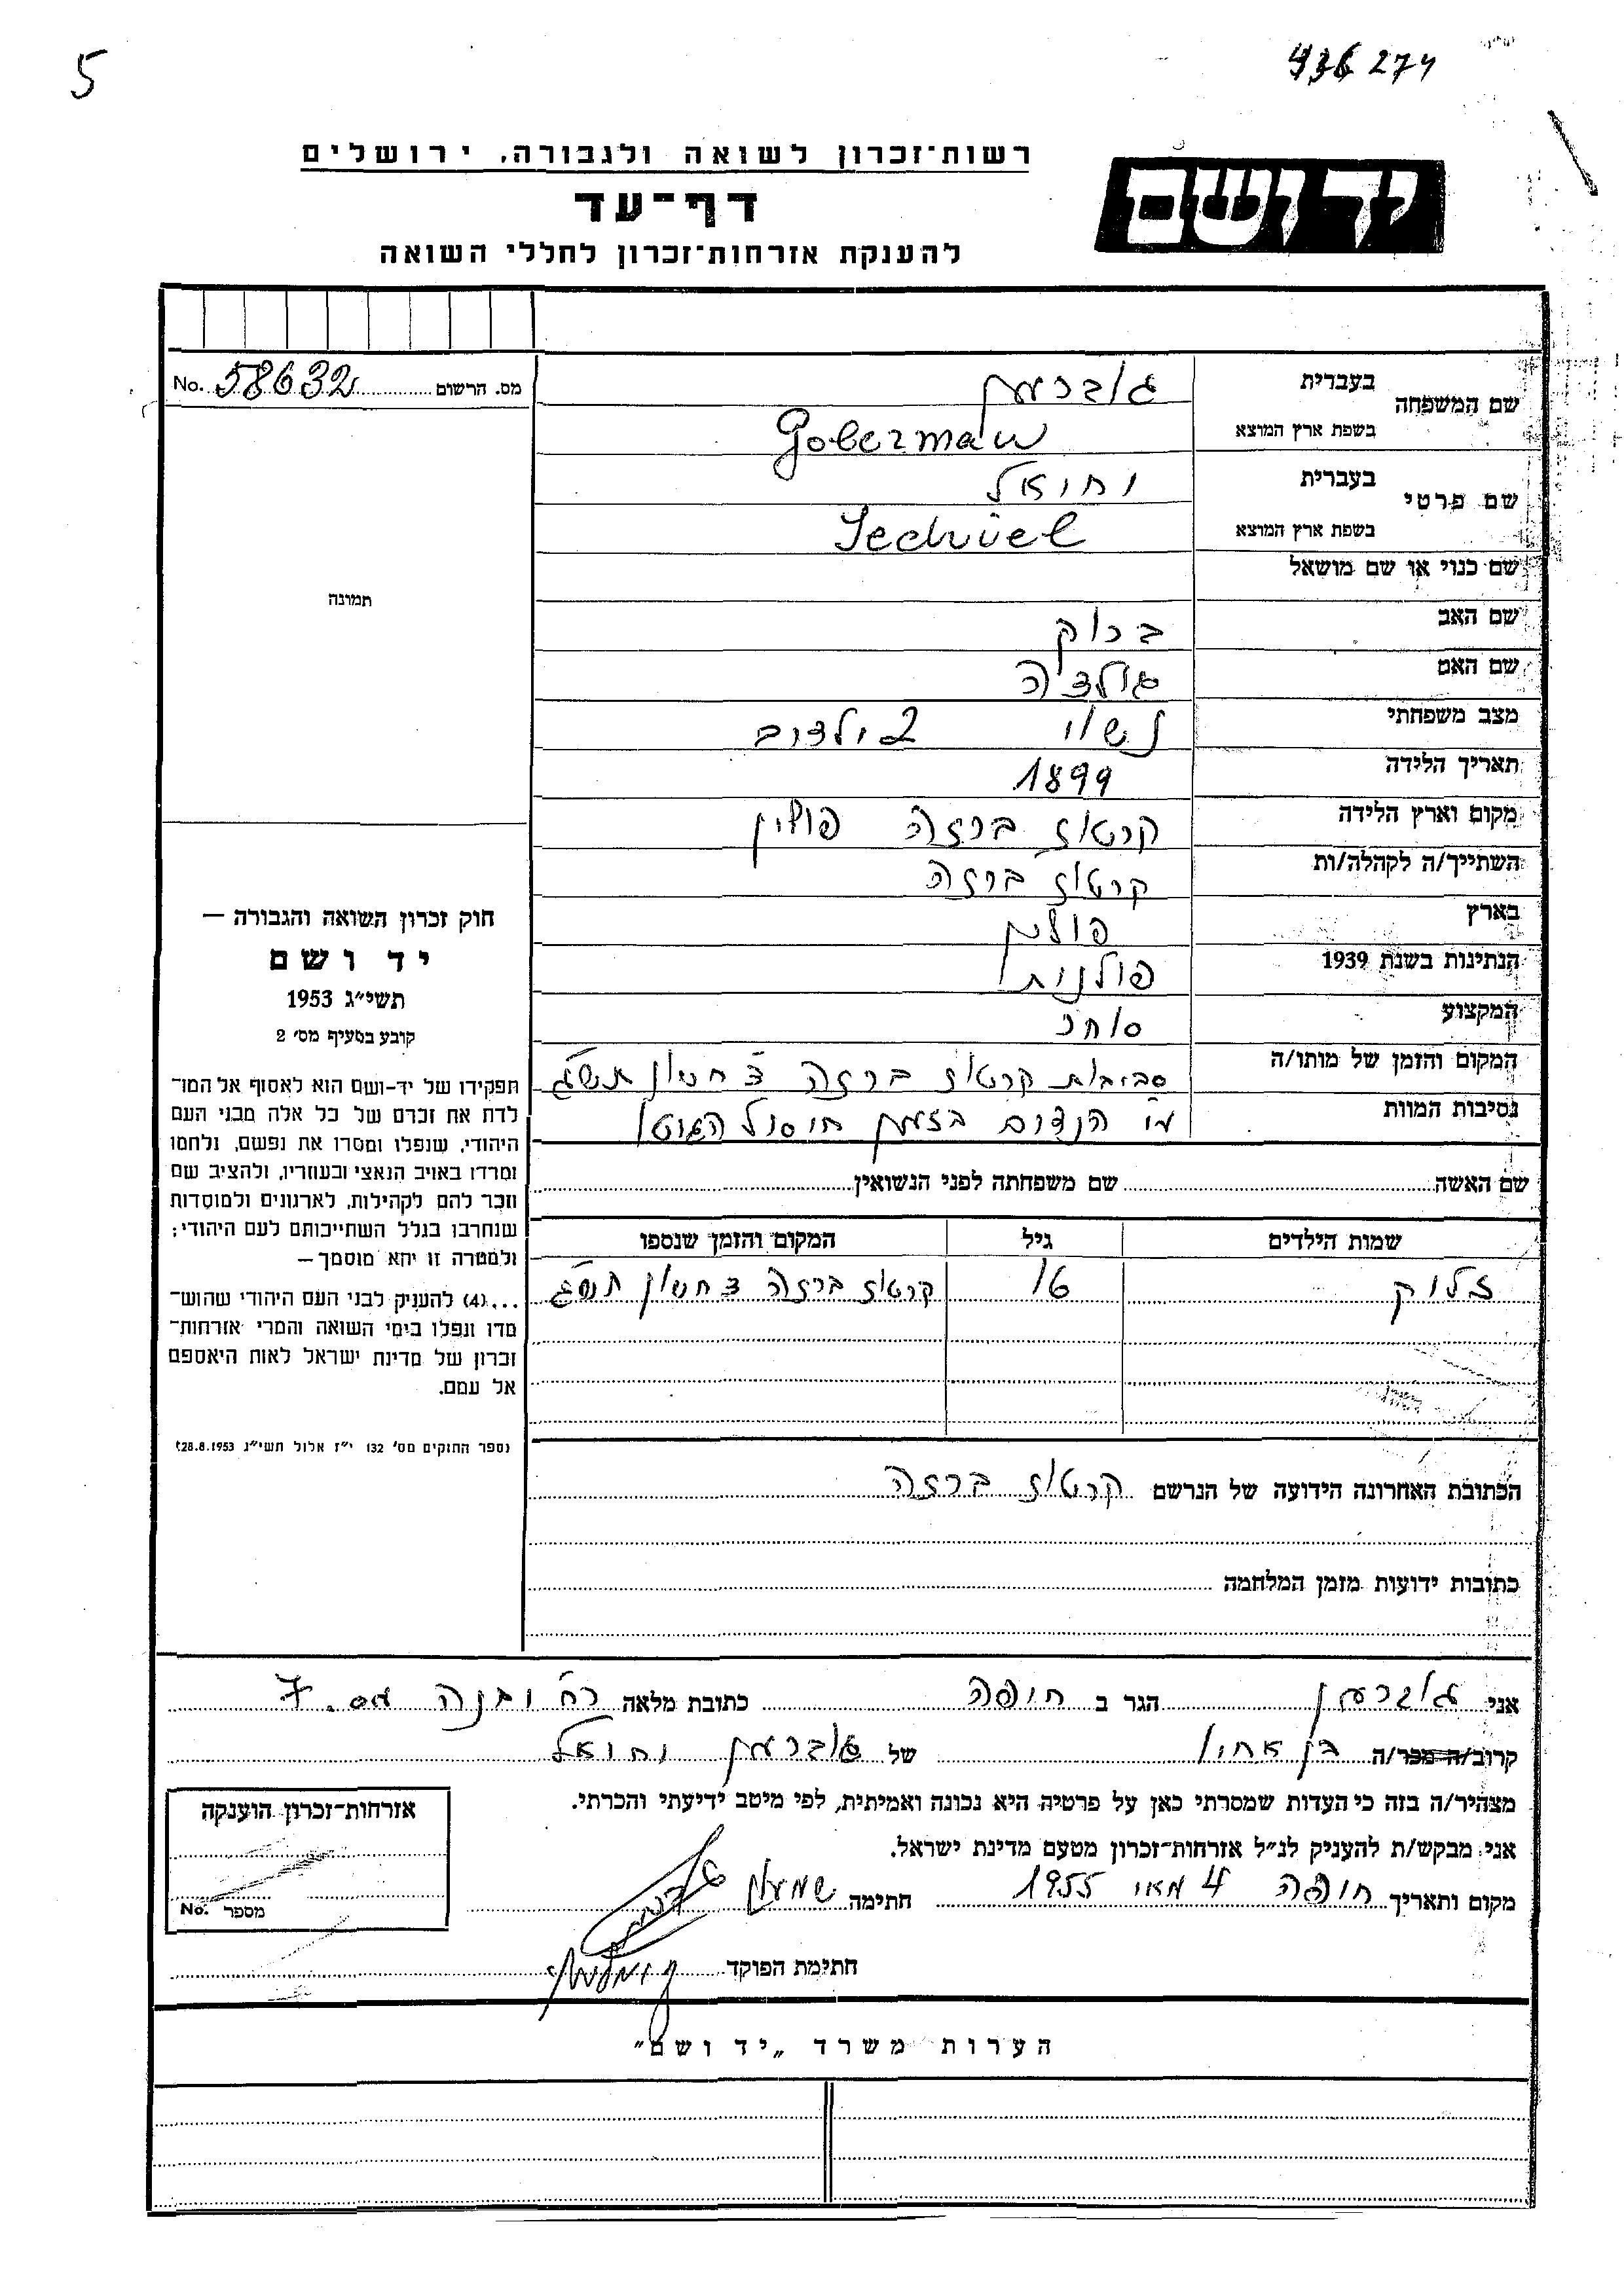 5
436274
רשות־זכרון לשואה ולגבורה, ירושלים
יד ושם
דף־עד
להענקת אזרחות־זכרון לחללי השואה
מס. הרשום 58632 No.
שם המשפחה
בעברית גוברמן
בשפת ארץ המוצא Goberman
שם פרטי
בעברית יחיאל
בשפת ארץ המוצא Jechiel
שם כנוי או שם מושאל
שם האב ברוק
שם האם גולדה
מצב משפחתי נשוי 2 ילדים
תאריך הלידה 1899
מקום וארץ הלידה קרטוז ברזה פולין
השתייך/ה לקהלה/ות קרטוז ברזה
בארץ פולין
הנתינות בשנת 1939 פולנית
המקצוע סוחר
המקום והזמן של מותו/ה סביבות קרטוז ברזה חשון תש״ג
נסיבות המוות הנדום בזמן חיסול הגיטו
שם האשה שם משפחתה לפני הנשואין
שמות הילדים גיל המקום והזמן שנספו
זליק 16 קרטוז ברזה חשון תש״ג
הכתובת האחרונה הידועה של הנרשם קרטוז ברזה
כתובות ידועות מזמן המלחמה
תמונה
חוק זכרון השואה והגבורה —
יד ושם
תשי״ג 1953
קובע בסעיף מס׳ 2
תפקידו של יד-ושם הוא לאסוף אל המו־
לדת את זכרם של כל אלה מבני העם
היהודי, שנפלו ומסרו את נפשם, נלחמו
ומרדו באויב הנאצי ובעוזריו, ולהציב שם
וזכר להם לקהילות, לארגונים ולמוסדות
שנחרבו בגלל השתייכותם לעם היהודי;
ולמטרה זו יהא מוסמך —
...(4) להעניק לבני העם היהודי שהוש־
מדו ונפלו בימי השואה והמרי אזרחות־
זכרון של מדינת ישראל לאות היאספם
אל עמם.
(ספר החוקים מס׳ 132 י״ז אלול תשי״ג 28.8.1953)
אני גוברמן הגר ב חיפה כתובת מלאה רח׳ יבנה מס. 7
קרוב/ה מכר/ה בן אחיו של גוברמן יחיאל
מצהיר/ה בזה כי העדות שמסרתי כאן על פרטיה היא נכונה ואמיתית, לפי מיטב ידיעתי והכרתי.
אני מבקש/ת להעניק לנ״ל אזרחות־זכרון מטעם מדינת ישראל.
מקום ותאריך חיפה 4 מאי 1955 חתימה שמעון
חתימת הפוקד
אזרחות־זכרון הוענקה
מספר No.
הערות משרד „יד ושם״